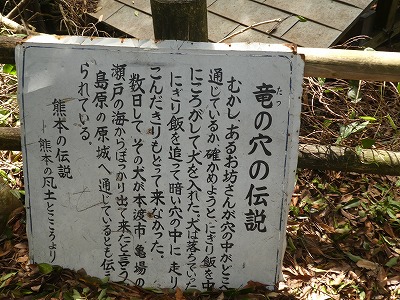 竜の穴の伝説
たつ
むかし、あるお坊さんが穴の中がどこ
通じているか確かめようと、にぎり飯を中
にころがして犬を入れた。犬は落ちていた
にぎり飯を追って暗い穴の中に走り
こんだきりもどって来なかった。
数日して、その犬が本渡市亀場の
瀬戸の海からぽっかり出て来たと言う。
島原の原城へ通じているとも伝え
られている。
熊本の伝説
－熊本の風土とこころより